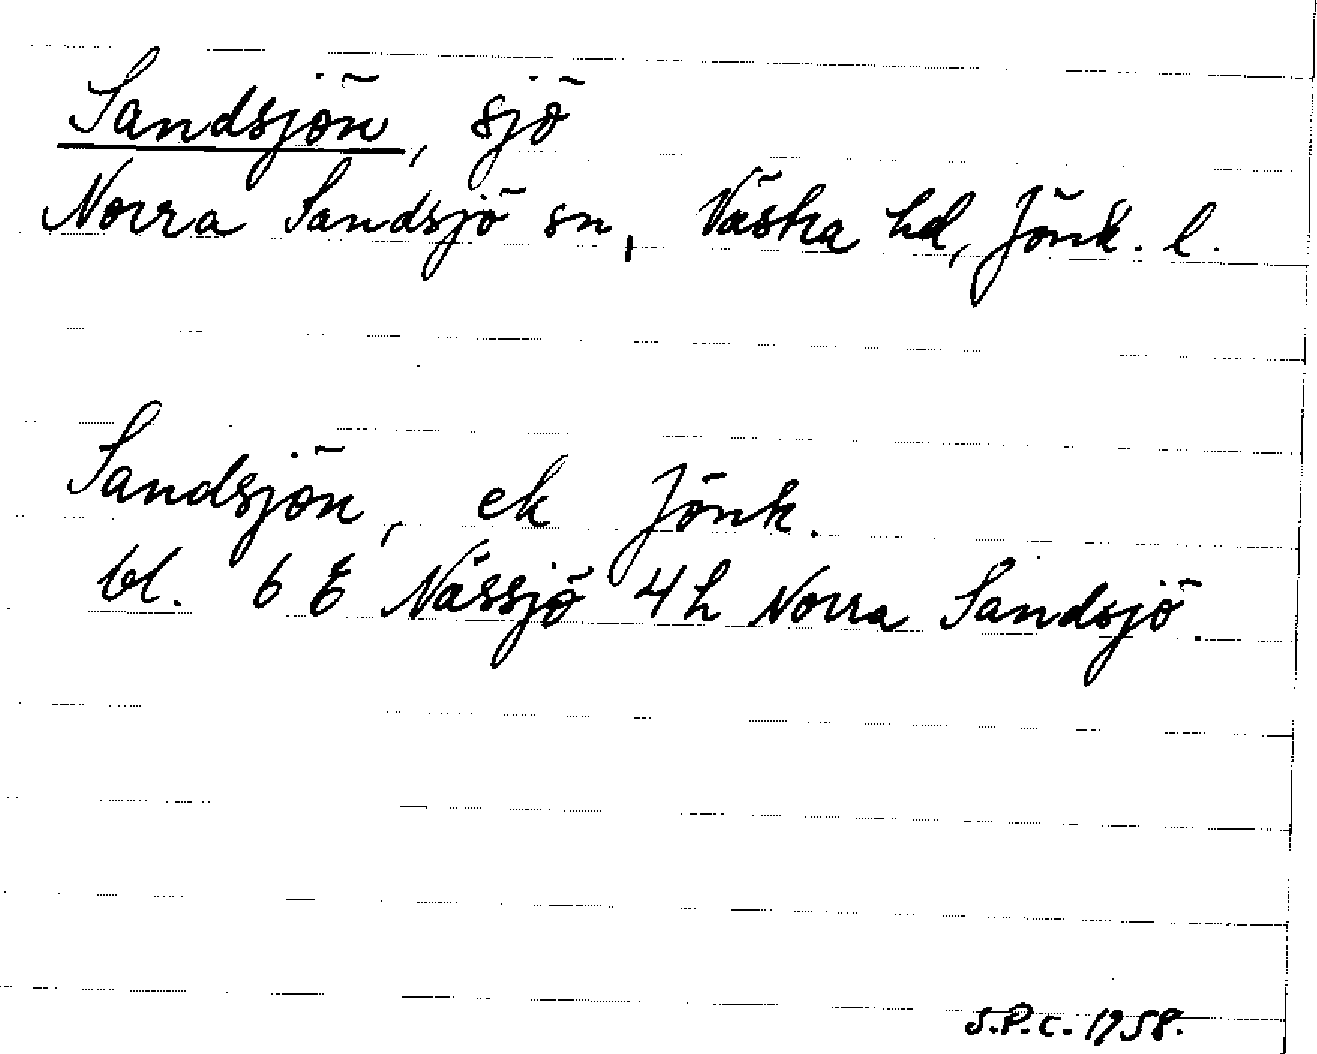 Sandsjön, sjö
Norra Sandsjö sn, Västra hd, Jönk. l.
Sandsjön, ek Jönk.
bl. 6 E Nässjö 4 h Norra Sandsjö.
S.P.C. 1958.